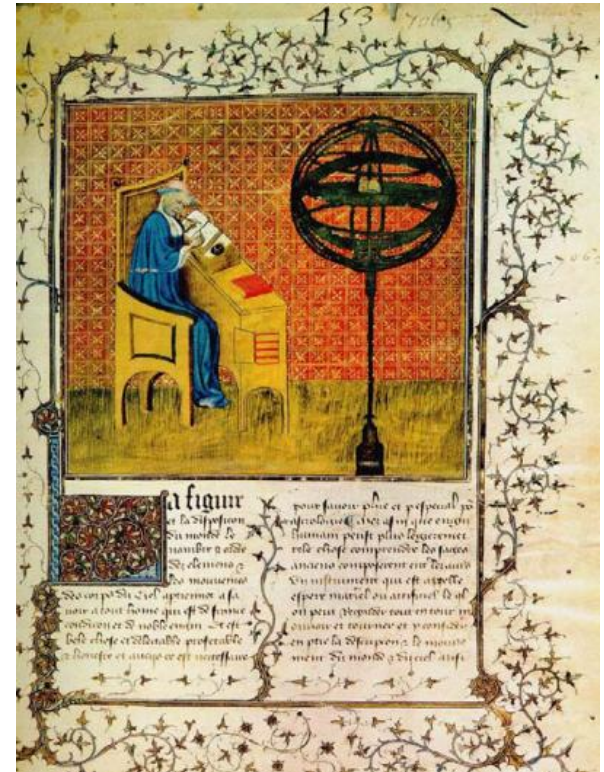 453 7065
a figure
et la disposicion
du monde le
nombre et ordre
des elemens et
les mouvemens
des corps du ciel aptienent a sa
voir a tout home qui est de franche
condicion et de noble engin Et est
bele chose et delectable profetable
et honeste et avecques ce est necessaire
pour savoir phie et especial
astrologie Et afin que engin
humain peust plus legierement
tele chose comprendre les sages
anciens composerent un
instrument qui est appelle
espere materiel ou artificiel
on peut regarder tout en tour
mouvoir et tourner et y considerer
en ptie la descripcion et le mouve
ment du monde et du ciel aussi